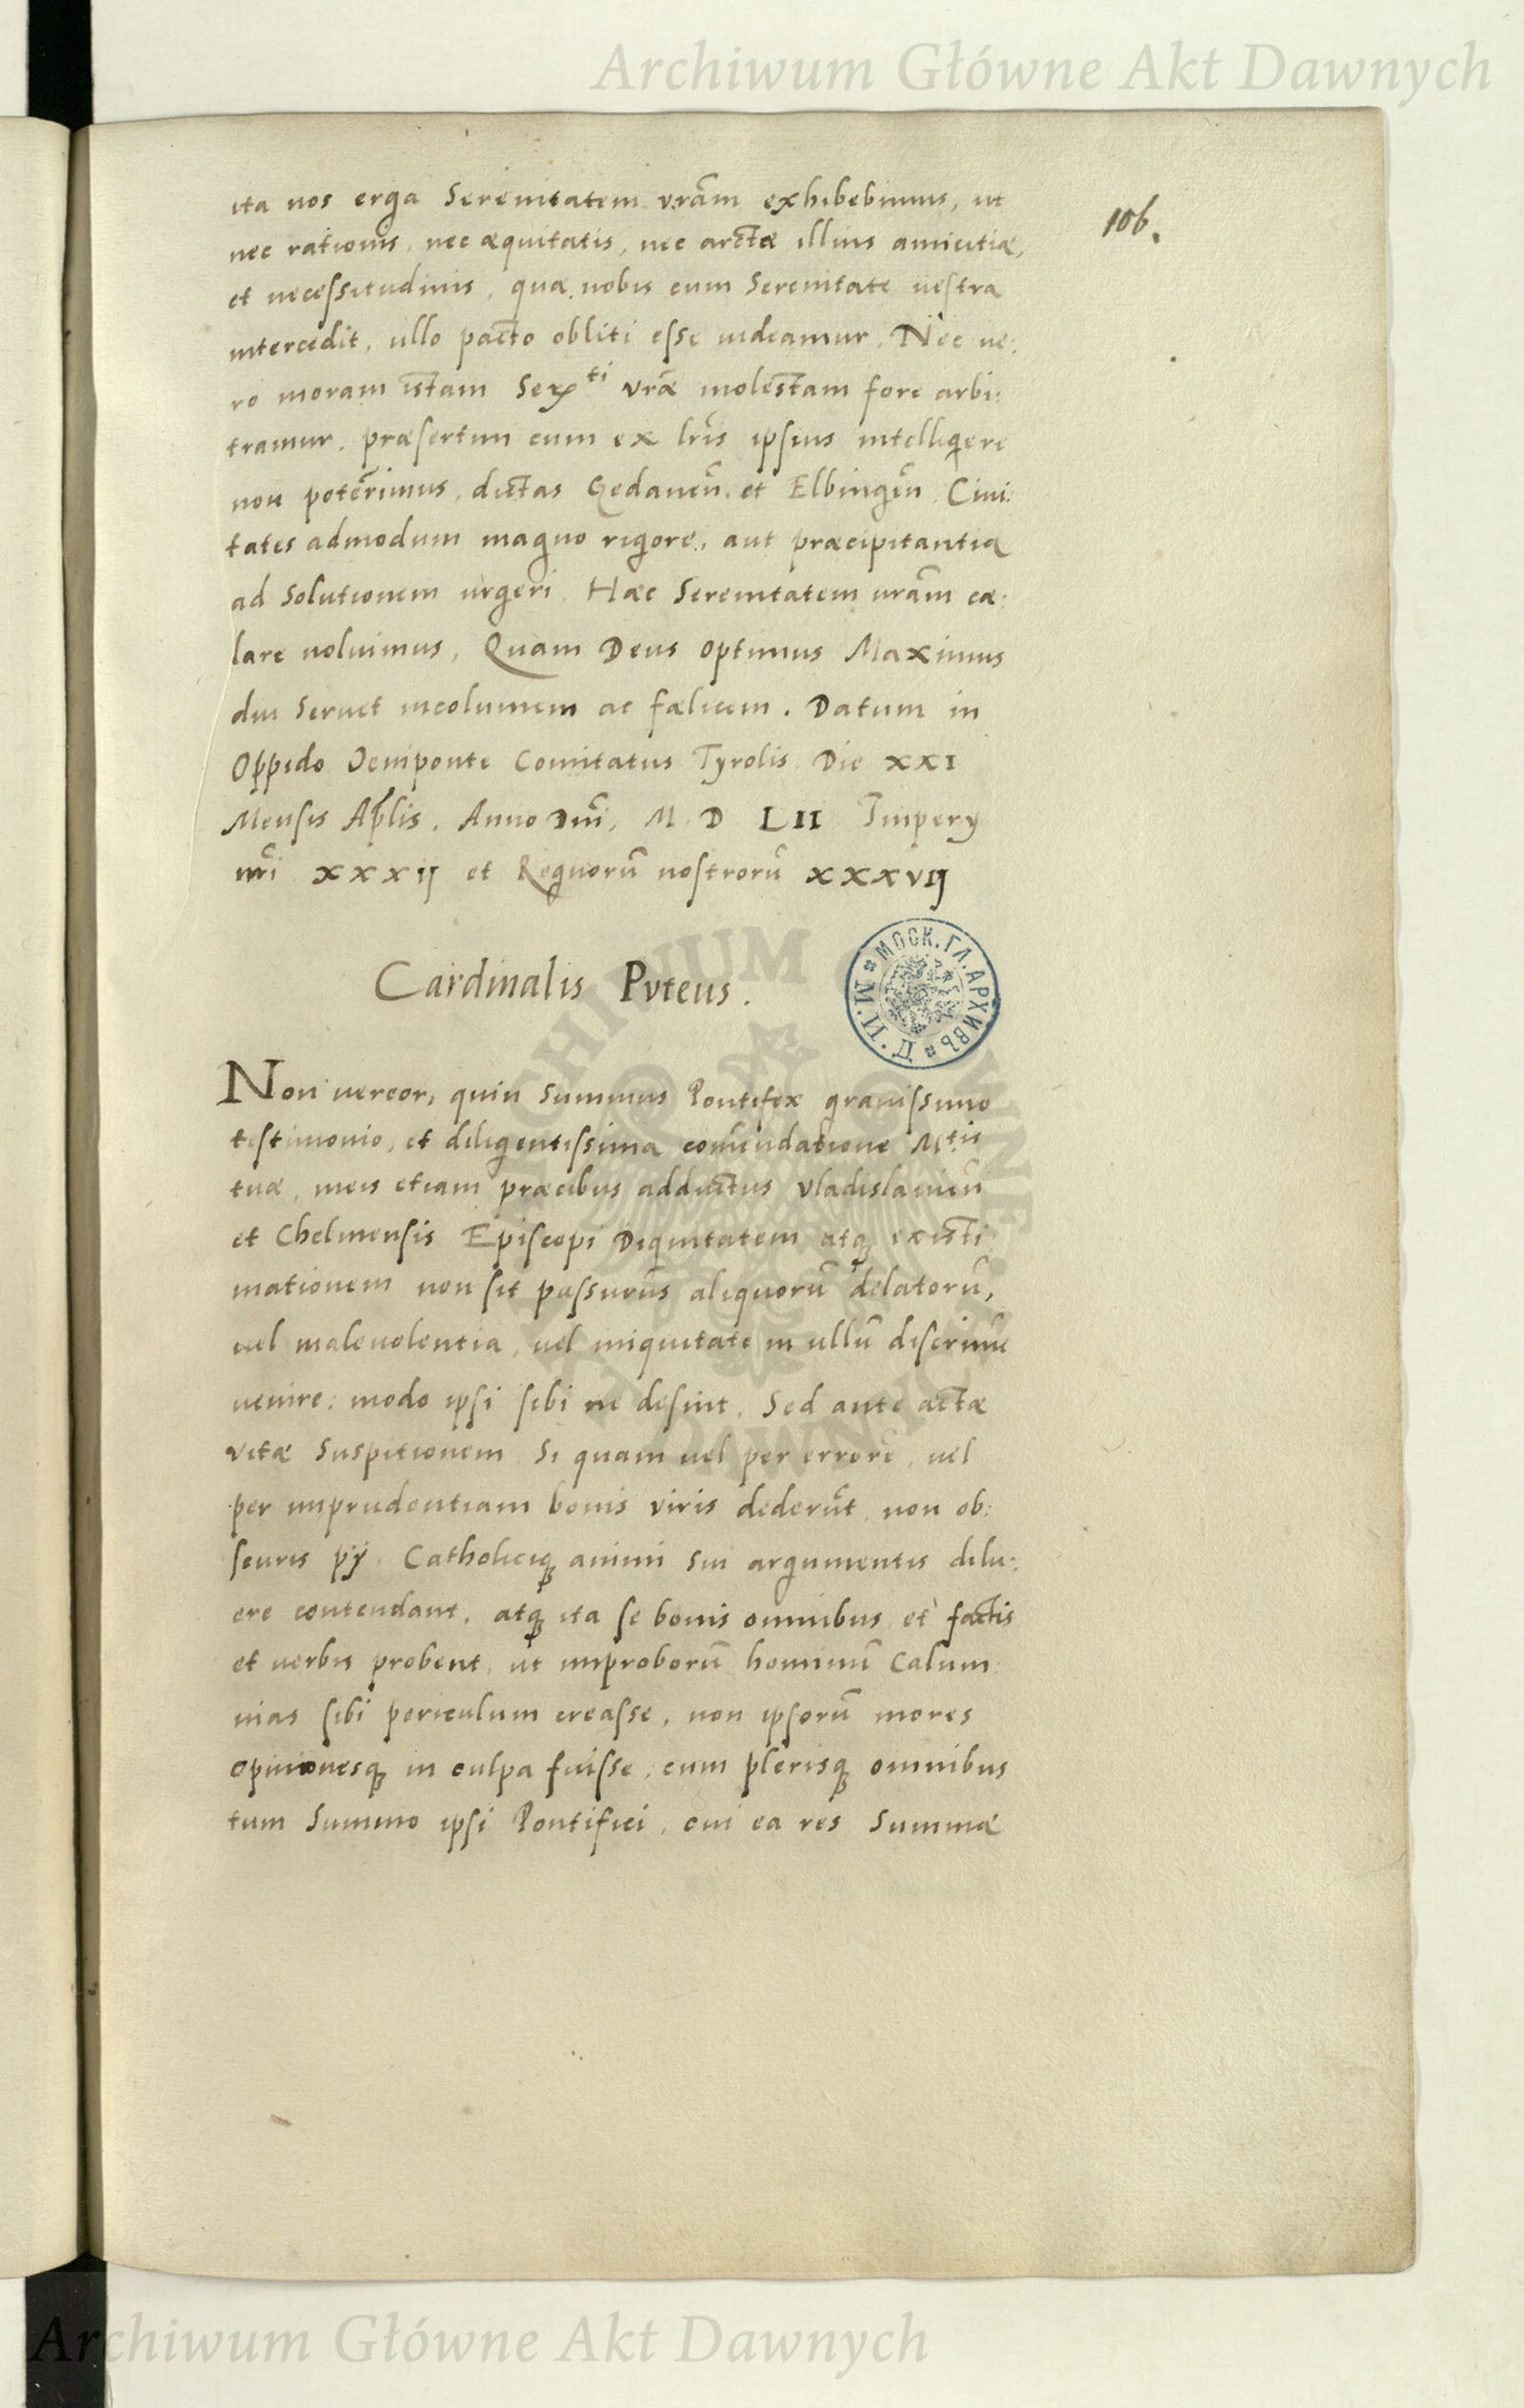 Archiwum Główne Akt Dawnych
106.
ita nos erga Serenitatem vrãm exhibebimus, ut
nec rationis, nec æquitatis, nec arctæ illius amicitiæ,
et necessitudinis, quæ nobis cum Serenitate uestra
intercedit, ullo pacto obliti esse uideamur. Nec ue:
ro moram istam Ser^ti vræ molestam fore arbi:
tramur, præsertim cum ex lris ipsius intelligere
non poterimus, dictas Gedanen̄. et Elbingen̄ Ciui:
tates admodum magno rigore, aut præcipitantia
ad Solutionem urgeri. Hæc Serenitatem urãm cæ:
lare noluimus, Quam Deus optimus Maximus
diu Seruet incolumem ac fælicem. Datum in
Oppido Oeniponte Comitatus Tyrolis Die XXI
Mensis Aplis, Anno Dnī, M D LII Imperÿ
nri XXXIJ et Regnorū nostrorū XXXVIJ
Cardinalis Pvteus.
МОСК. ГЛ. АРХИВЪ М. И. Д.
Non uereor, quin Summus Pontifex grauissimo
testimonio, et diligentissima comendatione M^tis
tuæ, meis etiam præcibus adductus Vladislauien̄
et Chelmensis Episcopi Dignitatem atq; existi
mationem non sit passurus aliquorū delatorū,
uel maleuolentia, uel iniquitate in ullū discrimē
uenire: modo ipsi sibi ne desint. Sed ante actæ
vitæ Suspitionem Si quam uel per errorē, uel
per imprudentiam bonis viris dederūt, non ob:
scuris pÿ, Catholiciq; animi sui argumentis dilu:
ere contendant, atq; ita se bonis omnibus et factis
et uerbis probent, ut improborū hominū Calum
nias sibi periculum creasse, non ipsorū mores
opinionesq; in culpa fuisse, cum plerisq; omnibus
tum Summo ipsi Pontifici, cui ea res Summæ
Archiwum Główne Akt Dawnych